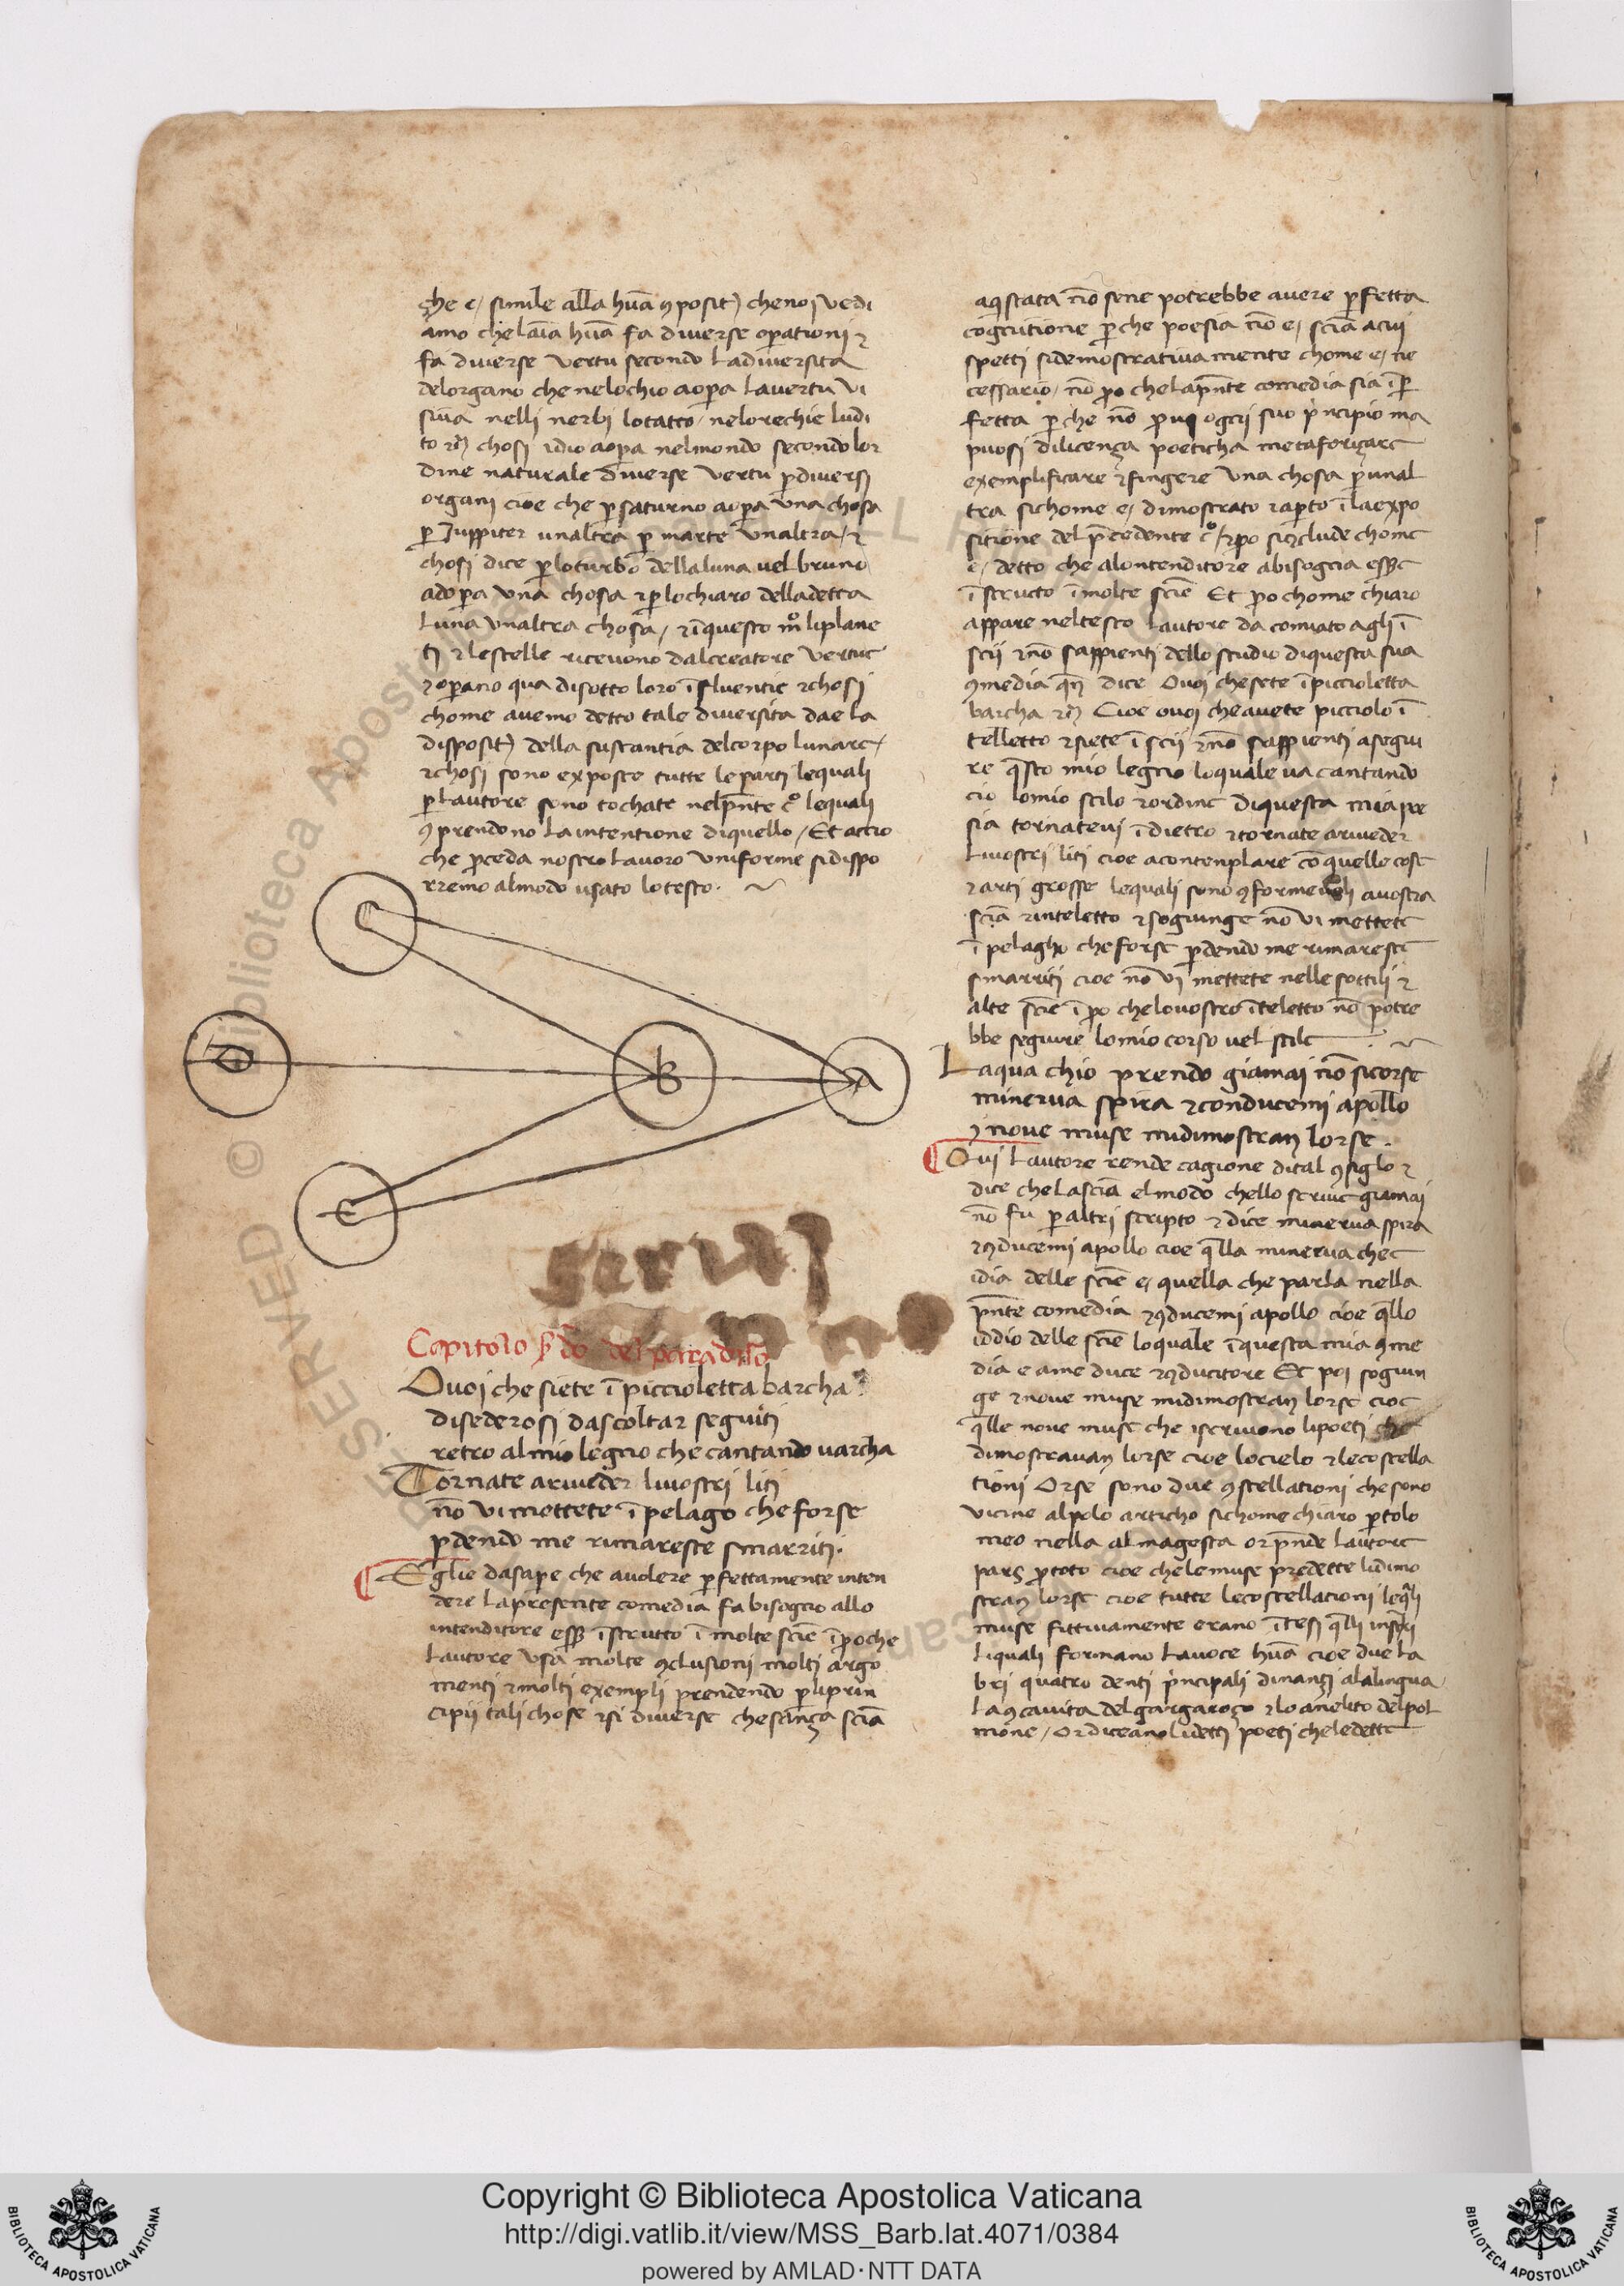 che e, simile alla huā ꝯposit͠ che noi vedi
amo che laīa huā fa diverse oꝑationi ⁊
fa diverse vertu secondo la diversita
del organo che nelochio aoꝑa la vertu vi
siva nelli nerbi lotatto, nelorechie ludi
to ⁊c̃ chosi idio aoꝑa nelmondo secondo lor
dine naturale diverse vertu ꝑ diversi
organi cioe che ꝑ saturno aoꝑa una chosa
ꝑ Juppiter unaltra ꝑ marte unaltra, ⁊
chosi dice ꝑ loturbo della luna vel bruno
adoꝑa una chosa ⁊ ꝑ lochiaro della detta
luna unaltra chosa, ⁊ ī questo mo liplane
ti ⁊ le stelle ricevono dalcreatore vertute
⁊ oꝑano qua disotto loro īfluentie ⁊ chosi
chome avemo detto tale diversita dae la
disposit͠ della sustantia delcorpo lunare,
⁊ chosi sono exposte tutte le parti lequali
ꝑ lautore sono tochate nel p̄nte co lequali
ꝯprendono la intentione di quello, Et accio
che ꝓceda nostro lavoro uniforme sidispo
rremo almodo usato lo testo.
C
D
B
A
C
Capitolo s̄do del paradiso
Ovoi che siete ī piccioletta barcha
disederosi dascoltar seguiti
retro al mio legno che cantando varcha
Tornate arivedeʳ livostri liti
nō vi mettete ī pelago che forse
ꝑdendo me rimareste smarriti.
Eglie dasaꝑe che avolere ꝑfettamente inten
dere la presente comedia fa bisogno allo
intenditore eſſe īstrutto ī molte sciē īꝑo che
lautore usa molte ꝯclusioni molti argo
menti ⁊ molti exempli prendendo ꝑ li prin
cipii tali chose ⁊ si diverse che sanza sciā
aq̄stata nō sene potrebbe avere ꝑfetta
cognitione ꝑ che poesia nō e, sciā acui
spetti sidemostrativamente chome e, ne
cessario, nō ꝑo che la p̄nte comedia sia īꝑ
fetta ꝑ che nō
puosi dilicenza poeticha metaforizare
exemplificare ⁊ fingere una chosa ꝑ unal
tra sichome e, dimostrato ⁊ aꝑto ī la expo
sitione del p̄cedente co, ⁊ ꝑo si ꝯclude chome
e, detto che alontenditore abisogna eſſe
īstructo ī molte sciē Et ꝑo chome chiaro
appare neltesto lautore da comiato agli ī
scii ⁊ nō sappienti dello studio di questa sua
ꝯmedia qn̄ dice Ovoi che sete ī piccioletta
barcha ⁊c̃ Cioe ovoi che avete picciolo ī
telletto ⁊ siete ī scii ⁊ nō sappienti a segui
re q̄sto mio legno loquale va cantando
cio lo mio stilo ⁊ ordine di questa mia poe
sia tornatevi ī dietro ⁊ tornate arivedeʳ
livostri liti cioe acontenplare cō quelle cose
⁊ arti grosse lequali sono ꝯformevoli avostra
sciā ⁊ inteletto ⁊ sogiunge nō vi mettete
ī pelagho che forse ꝑdendo me rimareste
smarriti cioe nō vi mettete nelle sottili ⁊
alte sciē īꝑo che lovostro īteletto nō potre
bbe seguire lo mio corso vel stile
Laqua chio prendo giamai nō sicorse
minerva spira ⁊ conducemi apollo
⁊ nove muse midimostran lorse.
Qui lautore rende cagione dital ꝯsiglo ⁊
dice che la sciā el modo chello scrive giamai
nō fu ꝑ altri scripto ⁊ dice minerva spira
⁊ ꝯducemi apollo cioe q̄lla minerva che e
idia delle sciē e, quella che parla nella
p̄nte comedia ⁊ ꝯducemi apollo cioe q̄llo
iddio delle sciē loquale ī questa mia ꝯme
dia e a me duce ⁊ ꝯducitore Et poi sogiun
ge ⁊ nove muse midimostran lorse cioe
q̄lle nove muse che iscrivono lipoeti che
dimostravan lorse cioe lo cielo ⁊ le costella
tioni Orse sono due ꝯstellationi che sono
vicine alpolo articho sichome chiaro ꝑ tolo
meo nella almagesta or p̄nde lautore
pars ꝓ toto cioe che le muse predette lidimo
stran lorse cioe tutte le costellationi leq̄li
muse fittivamente erano
liquali formano la voce huā cioe due la
bri quatro denti principali dinanzi alalingua,
la ꝯcavita del gargarozo ⁊ lo anelito del pol
mone, Or diceano li detti poeti che le dette
Copyright © Biblioteca Apostolica Vaticana
http://digi.vatlib.it/view/MSS_Barb.lat.4071/0384
powered by AMLAD·NTT DATA
BIBLIOTECA APOSTOLICA VATICANA
BIBLIOTECA APOSTOLICA VATICANA